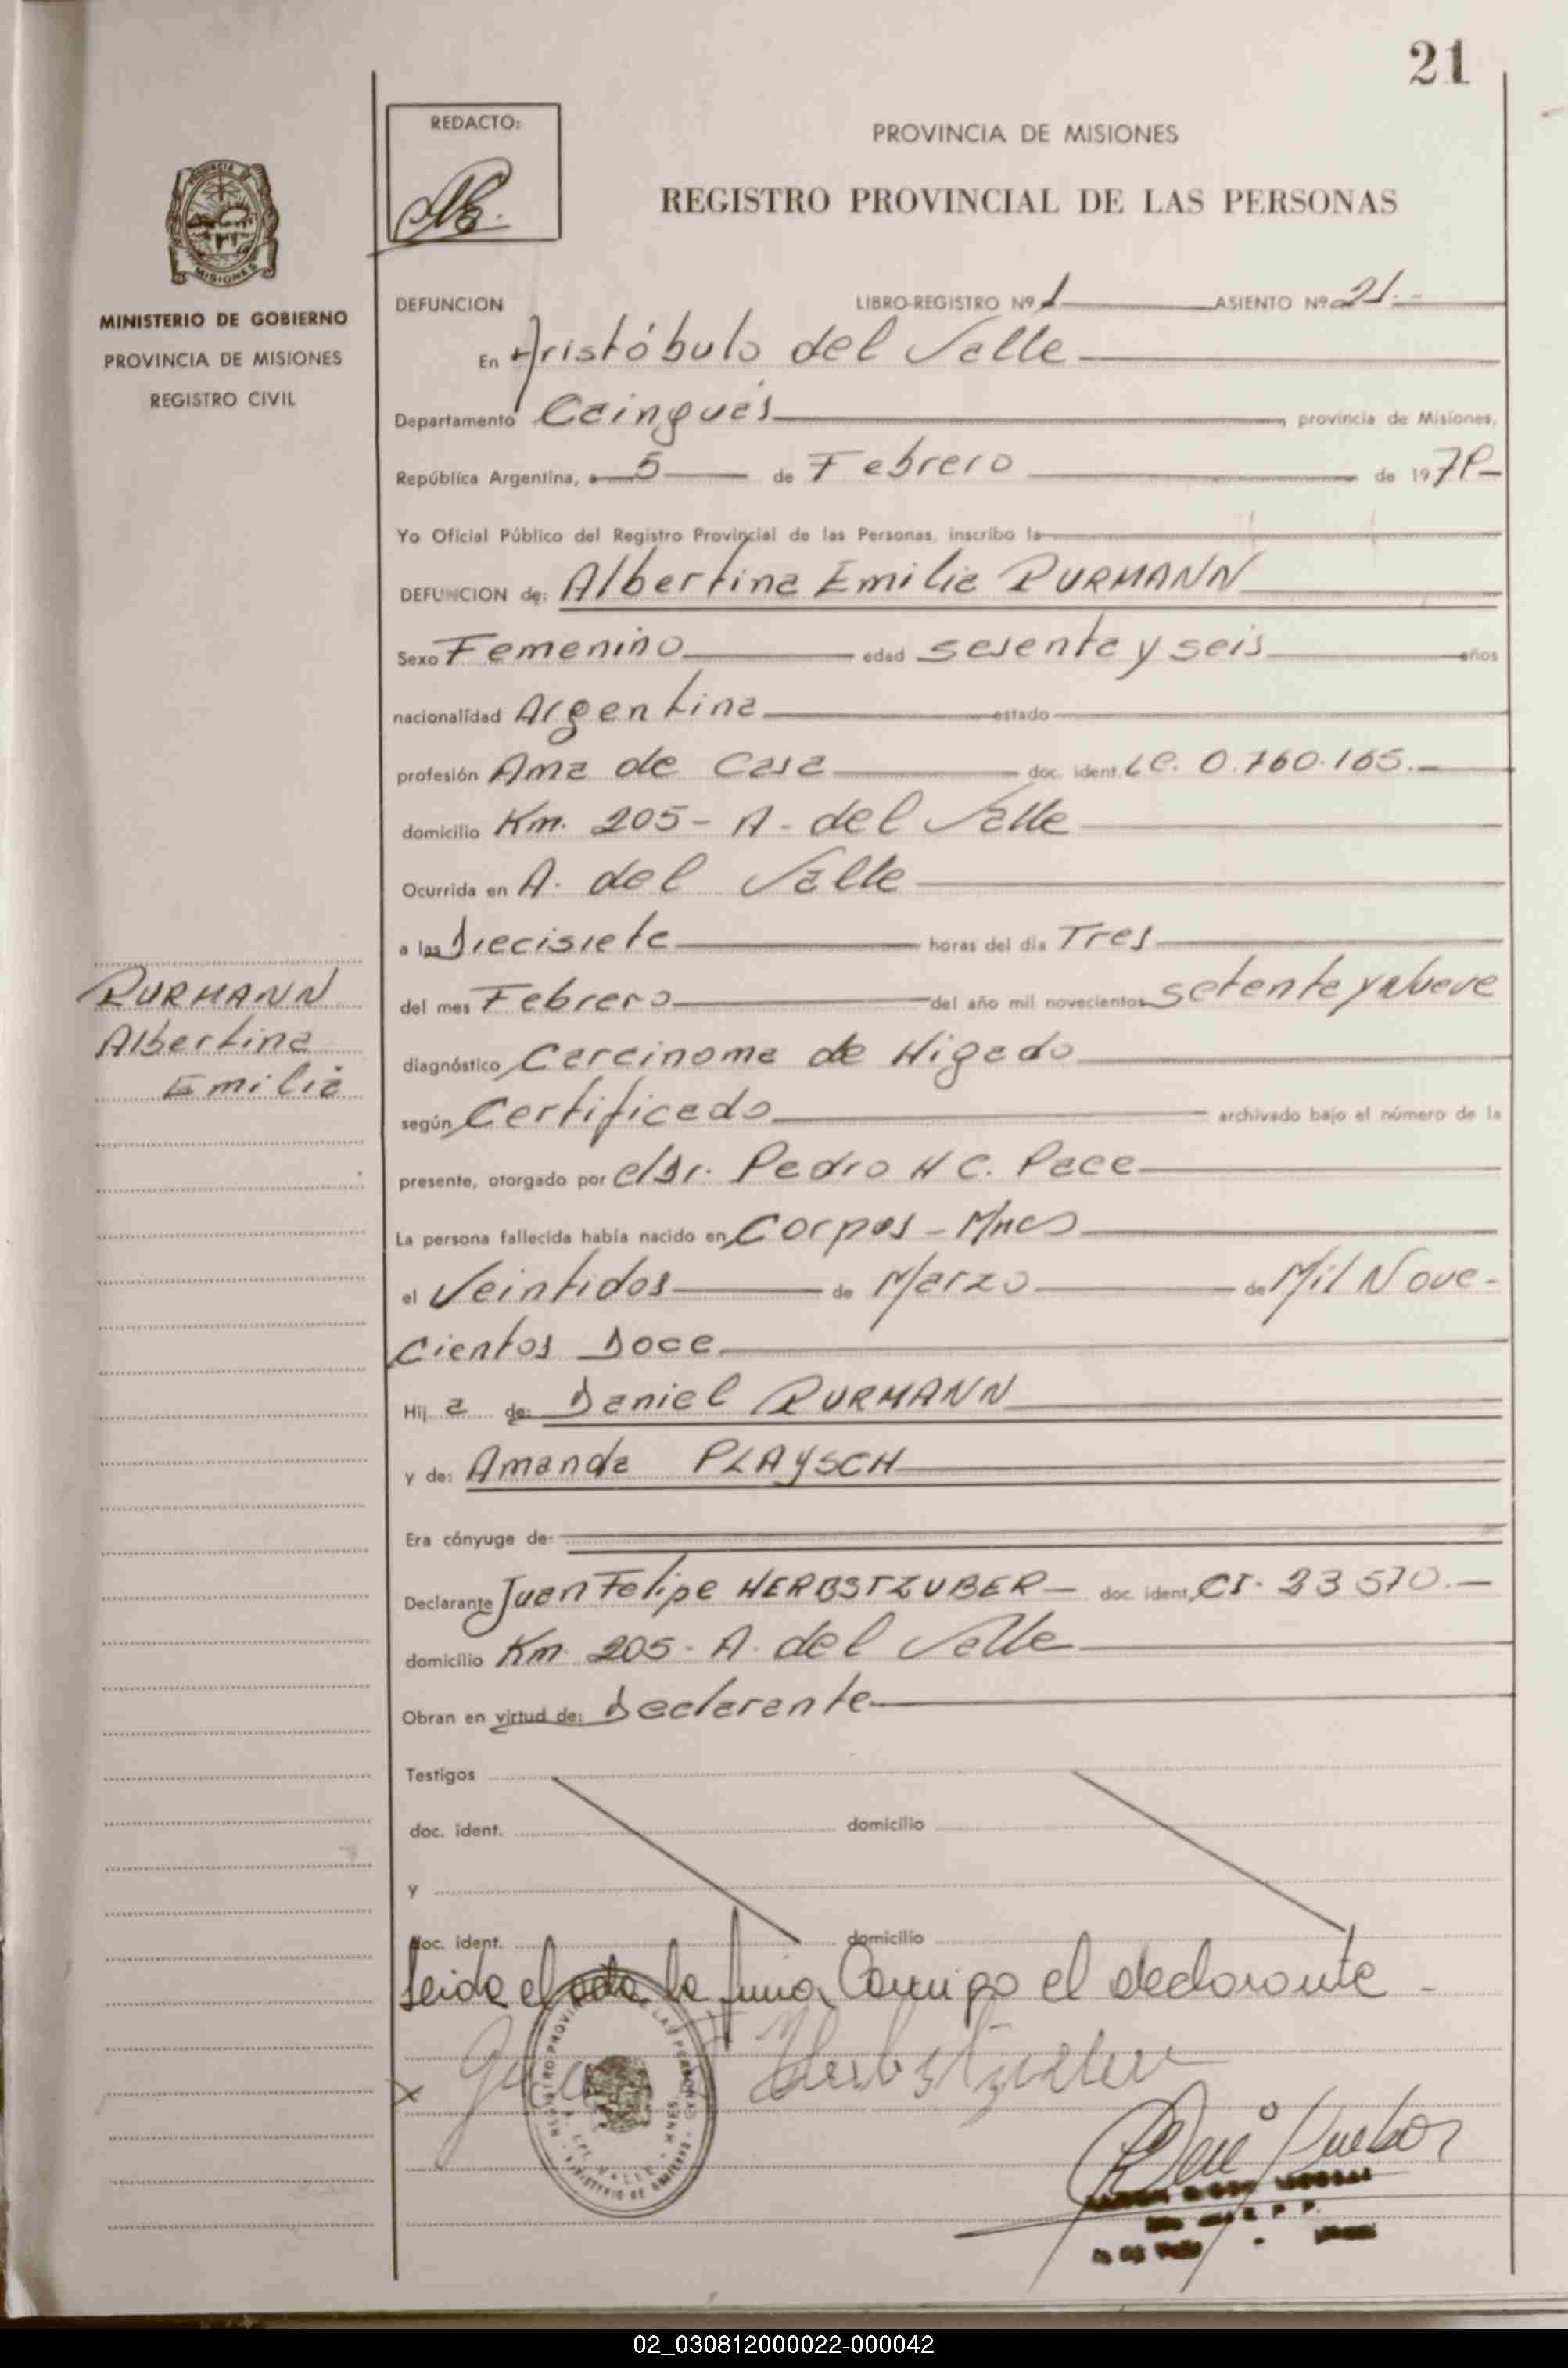 21
REDACTO:
PROVINCIA DE MISIONES
REGISTRO PROVINCIAL DE LAS PERSONAS
PROVINCIA DE
MISIONES
MINISTERIO DE GOBIERNO
PROVINCIA DE MISIONES
REGISTRO CIVIL
DEFUNCION LIBRO-REGISTRO Nº 1 ASIENTO Nº 21.-
En Aristóbulo del Valle
Departamento Cainguás, provincia de Misiones,
República Argentina, a 5 de Febrero de 1979-
Yo Oficial Público del Registro Provincial de las Personas, inscribo la
DEFUNCION de: Albertina Emilia DURMANN
Sexo Femenino edad sesenta y seis años
nacionalidad Argentina estado
profesión Ama de Casa doc. ident. LC. 0.760.165.-
domicilio Km. 205- A. del Valle
Ocurrida en A. del Valle
a las Diecisiete horas del día Tres
del mes Febrero del año mil novecientos setenta y Nueve
diagnóstico Carcinoma de Higado
según Certificado archivado bajo el número de la
presente, otorgado por el Dr. Pedro H C. Pace
La persona fallecida había nacido en Corpus - Mnes
el Veintidos de Marzo de Mil Nove-
cientos Doce
Hij a de: Daniel DURMANN
y de: Amanda PLAYSCH
Era cónyuge de:
Declarante Juan Felipe HERBSTZUBER - doc. ident. CI. 33 570.-
domicilio Km. 205- A. del Valle
Obran en virtud de: Declarante
Testigos
doc. ident. domicilio
y
doc. ident. domicilio
Leida el acta la firma Conmigo el declarante -
DURMANN
Albertina
Emilia
02_030812000022-000042